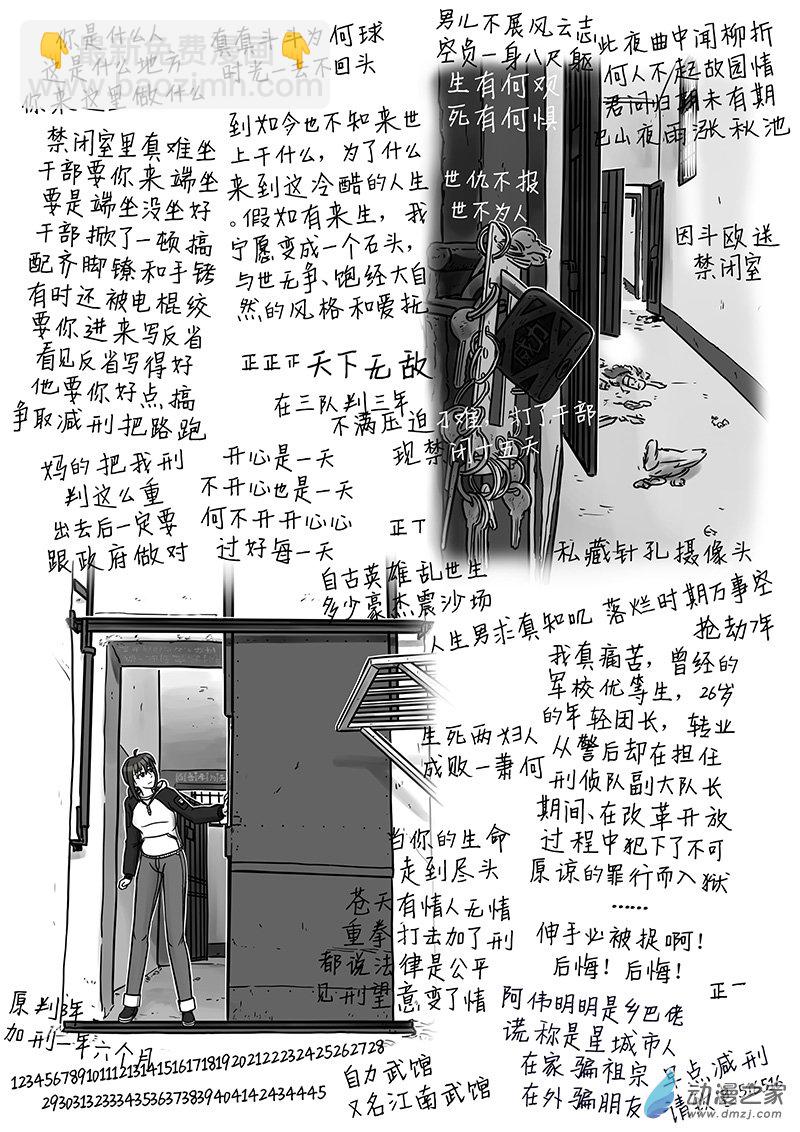 你是什么人
这是什么地方
你来这里做什么
真真斗斗为何球
时光一去不回头
最新免费漫画
男儿不展风云志
空负一身八尺躯
生有何欢
死有何惧
此夜曲中闻柳折
何人不起故园情
君问归期未有期
巴山夜雨涨秋池
禁闭室里真难坐
干部要你来端坐
要是端坐没坐好
干部掀了一顿搞
配齐脚镣和手铐
有时还被电棍绞
要你进来写反省
看见反省写得好
他要你好点搞
争取减刑把路跑
到如今也不知来世
上干什么，为了什么
来到这冷酷的人生
。假如有来生，我
宁愿变成一个石头，
与世无争、饱经大自
然的风格和爱抚
世仇不报
世不为人
因斗欧送
禁闭室
成功
正正正天下无敌
在三队判三年
不满压迫
打了干部
现禁闭十五天
妈的把我刑
判这么重
出去后一定要
跟政府做对
开心是一天
不开心也是一天
何不开开心心
过好每一天
正丅
私藏针孔摄像头
自古英雄乱世生
多少豪杰震沙场
人生男求真知叽
落烂时期万事空
抢劫7年
我真痛苦，曾经的
军校优等生，26岁
的年轻团长，转业
从警后却在担任
刑侦队副大队长
期间、在改革开放
过程中犯下了不可
原谅的罪行而入狱
……
伸手必被捉啊！
后悔！后悔！
生死两妇人
成败一萧何
当你的生命
走到尽头
苍天有情人无情
重拳打去加了刑
都说法律是公平
见刑望意变了情
正一
阿伟明明是乡巴佬
谎称是星城市人
在家骗祖宗
在外骗朋友
原判3年
加刑一年六个月
12345678910111213141516171819202122232425262728
2930313233343536373839404142434445
自力武馆
又名江南武馆
动漫之家
www.dmzj.com